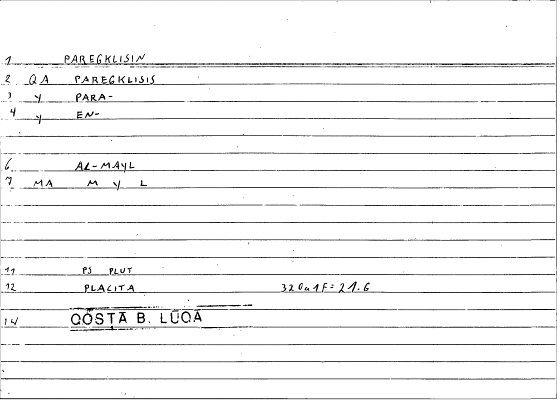 1 PAREGKLISIN
2 QA PAREGKLISIS
3 y PARA-
4 y EN-
6 AL-MAYL
7 MA M y L
11 PS PLUT
12 PLACITA 320a1F=21.6
14 COSTA B. LUCA